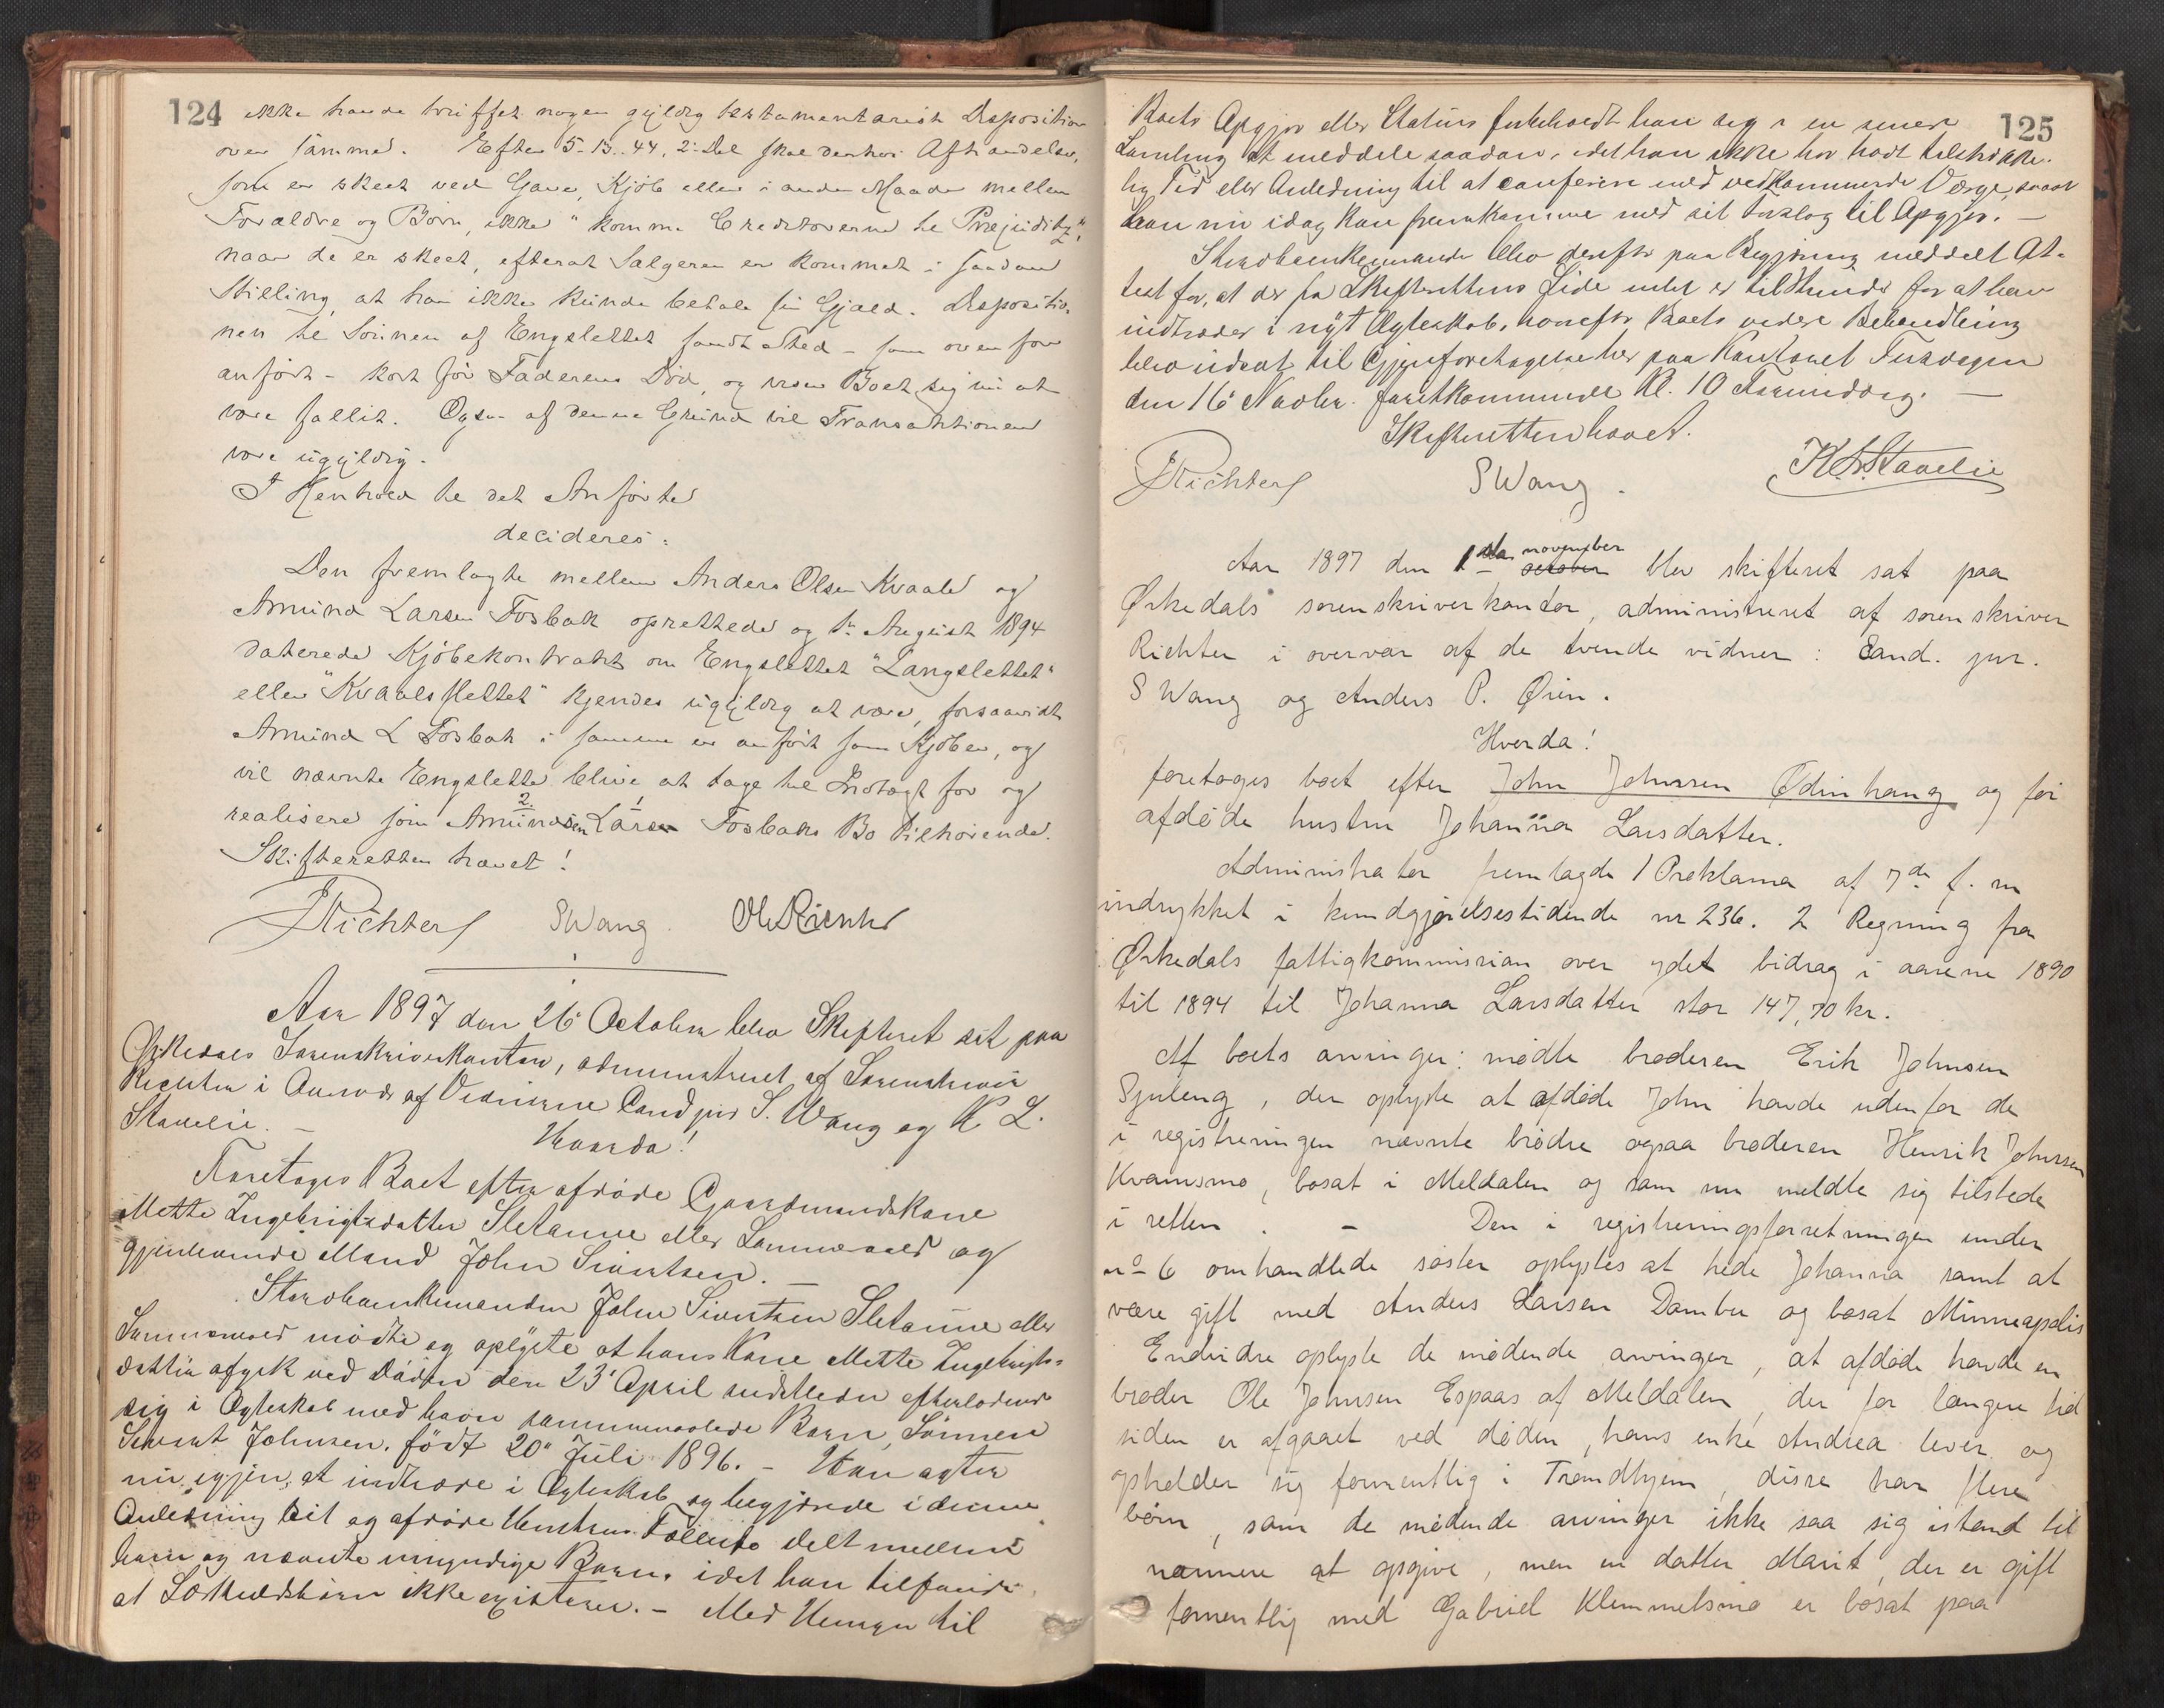 124
ikke havde truffet nogen gyldig testamentarisk Disposition
over samme. Efter 5-13-44, 2. Del skal derhos Afhændelser,
som er skeet ved Gave, Kjöb eller i anden Maade mellem
Forældre og Börn, ikke "komme Creditorerne til Præjuditz",
naar de er skeet, efterat Sælgeren er kommet i saadan
Stilling, at han ikke kunde betale sin Gjæld. Dispositio-
nen til Sönnen af Engslettet fandt Sted - som ovenfor
anfört - kort för Faderens Död, og viser Boet sig nu at
være fallit. Ogsaa af denne Grund vil Transaktionen
være ugyldig.
I Henhold til det Anförte
decideres:
Den fremlagte mellem Anders Olsen Kvaale og
Amund Larsen Fosbak oprettede og 1ste August 1894
daterede Kjöbekontrakt om Engslettet "Langslettet"
eller "Kvaalsslettet" kjendes ugyldig at være, forsaavidt
Amund L Fosbak i samme er anfört som Kjöber, og
vil nævnte Engslette blive at tage til Indtægt for og
realisere som Amundsen 2 Lars 1 Fosbaks Bo tilhörende.
Skifteretten hævet!
Richter SWang
Aar 1897 den 26' October blev Skifteret sat paa
Ørkedals Sorenskriverkontor, administreret af Sorenskriver
Richter i Overvær af Vidnerne Cand jur S. Wang og K L.
Stavelie. -
Hvorda!
Foretoges Boet efter afdøde Gaardmandskone
Mette Ingebrigtsdatter Sletaune eller Sommervold og
gjenlevende Mand John Sivertsen. -
Stervboenkemanden John Sivertsen Sletaune eller
Sommervold mødte og oplyste at hans Kone Mette Ingebrigts-
datter afgik ved Døden den 23' April sidstleden efterladende
sig i Ægteskab med ham sammenavlede Barn, Sönnen
Sivert Johnsen, födt 20' Juli 1896. - Han agter
nu igjen at indtræde i Ægteskab og begjærede i denne
Anledning sit og afdøde Hustrues Fælleibo delt mellem
ham og nævnte umyndige Barn, idet han tilföiede
at Særkuldsbörn ikke existerer. - Med Hensyn til
125
Boets Opgjør eller Status forbeholdt han sig i en senere
Samling at meddele saadan, idet han ikke har havt tilstrække-
lig Tid eller Anledning til at conferere med vedkommende Værge, saaat
han nu idag kan fremkomme med sit Forslag til Opgjør. -
Stervboenkemanden blev derefter paa Begjæring meddelt At-
test for, at der fra Skifterettens Side intet er til Hinder for at han
indtræder i nyt Ægteskab, hvorefter Boets videre Behandling
blev udsat til Gjenforetagelse her paa Kontoret Tirsdagen
den 16' Novbr. førstkommende Kl. 10 Formiddag. -
Skifteretten hævet.
Richter SWang. K. L. Stavelie
Aar 1897 den 1ste november october blev skifteret sat paa
Ørkedals sorenskriverkontor, administreret af sorenskriver
Richter i overvær af de tvende vidner: Cand. jur.
S Wang og Anders P. Øien.
Hvorda!
foretoges boet efter John Johnsen Ødinhaug og før
afdøde hustru Johanna Larsdatter.
Administrator fremlagde 1 Proklama af 7de f. m
indrykket i kundgjørelsestidende nr 236. 2 Regning fra
Ørkedals fattigkommission over ydet bidrag i aarene 1890
til 1894 til Johanna Larsdatter stor 147,70 kr.
Af boets arvinger: mødte broderen Erik Johnsen
, der oplyste at afdøde John havde udenfor de
i registreringen nævnte brödre ogsaa broderen Henrik Johnsen
Kvamsmo, bosat i Meldalen og som nu meldte sig tilstede
i retten. - Den i registreringsforretningen under
no 6 omhandlede søster oplystes at hede Johanna samt at
være gift med Anders Larsen Dambu og bosat Minneapolis
Endvidre oplyste de mødende arvinger, at afdøde havde en
broder Ole Johnsen Espaas af Meldalen, der for længere tid
siden er afgaaet ved døden, hans enke Andrea lever og
opholder sig formentlig i Trondhjem, disse har flere
börn, som de mødende arvinger ikke saa sig istand til
nærmere at opgive, men en datter Marit, der er gift
formentlig med Gabriel Klemmetsmo er bosat paa